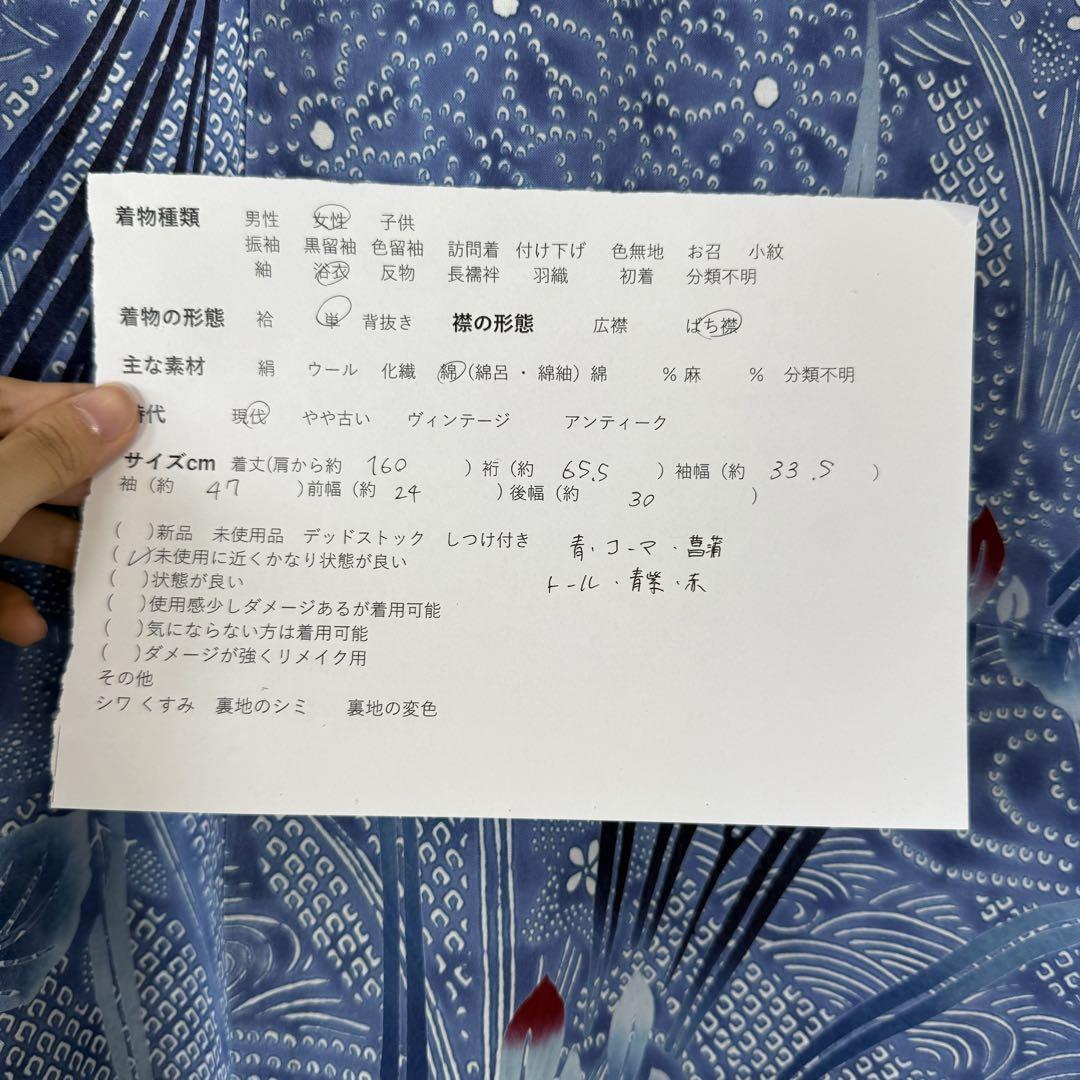 着物種類 男性 女性 子供
振袖 黒留袖 色留袖 訪問着 付け下げ 色無地 お召 小紋
紬 浴衣 反物 長襦袢 羽織 初着 分類不明
着物の形態 袷 単 背抜き 襟の形態 広襟 ばち襟
主な素材 絹 ウール 化繊 綿(綿呂・綿紬)綿 %麻 % 分類不明
時代 現代 やや古い ヴィンテージ アンティーク
サイズcm 着丈(肩から約 160 )裄(約 65.5 )袖幅(約 33.5 )
袖(約 47 )前幅(約 24 )後幅(約 30 )
( )新品 未使用品 デッドストック しつけ付き
(✓)未使用に近くかなり状態が良い
( )状態が良い
( )使用感少しダメージあるが着用可能
( )気にならない方は着用可能
( )ダメージが強くリメイク用
その他
シワ くすみ 裏地のシミ 裏地の変色
青・コーマ・菖蒲
トール・青紫・赤